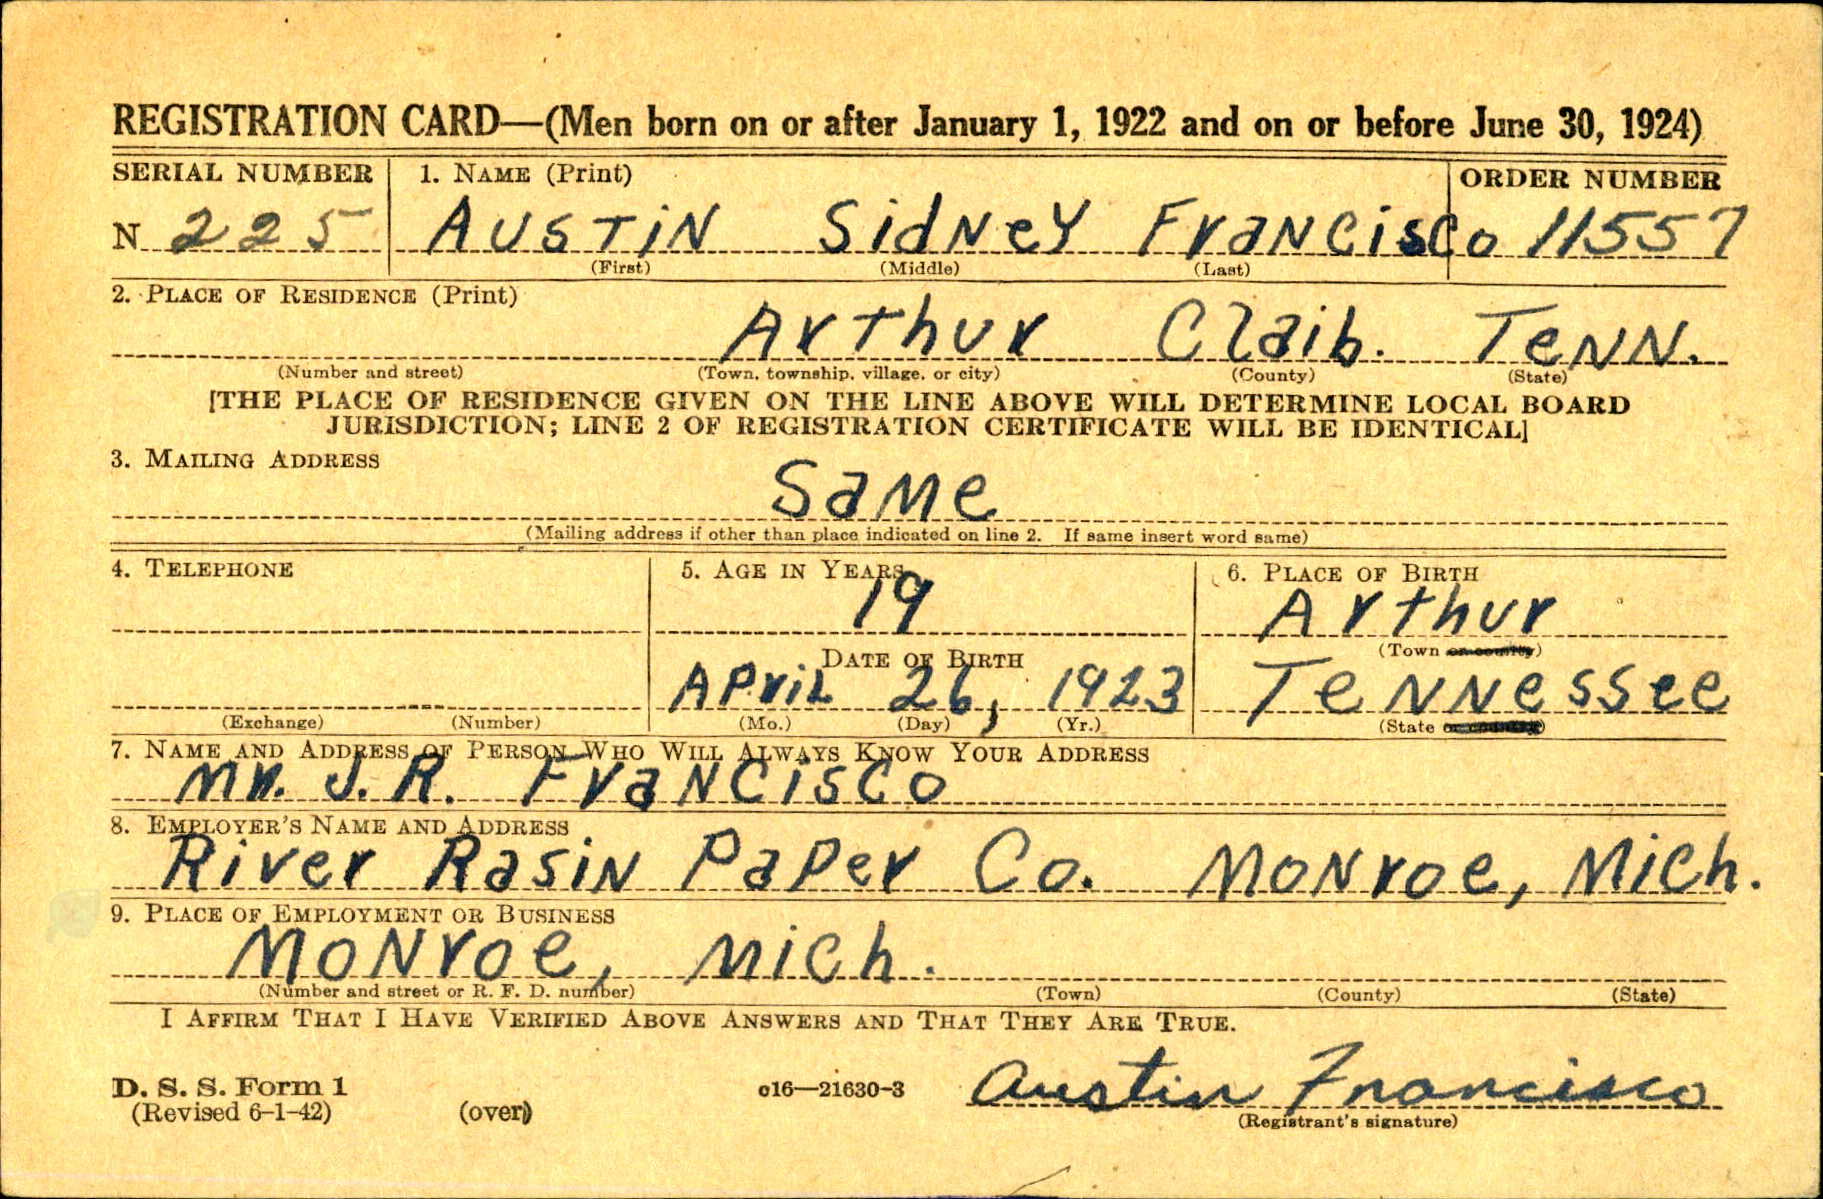 REGISTRATION CARD—(Men born on or after January 1, 1922 and on or before June 30, 1924)
SERIAL NUMBER 1. NAME (Print) ORDER NUMBER
N 225 AUSTiN SidNeY FraNCisCo 11557
(First) (Middle) (Last)
2. PLACE OF RESIDENCE (Print)
Arthur Claib. TeNN.
(Number and street) (Town, township, village, or city) (County) (State)
[THE PLACE OF RESIDENCE GIVEN ON THE LINE ABOVE WILL DETERMINE LOCAL BOARD
JURISDICTION; LINE 2 OF REGISTRATION CERTIFICATE WILL BE IDENTICAL]
3. MAILING ADDRESS
SaMe
(Mailing address if other than place indicated on line 2. If same insert word same)
4. TELEPHONE 5. AGE IN YEARS 6. PLACE OF BIRTH
19 Arthur
DATE OF BIRTH (Town or county)
APriL 26, 1923 TeNNessee
(Exchange) (Number) (Mo.) (Day) (Yr.) (State or country)
7. NAME AND ADDRESS OF PERSON WHO WILL ALWAYS KNOW YOUR ADDRESS
Mr. J. R. FraNCisCo
8. EMPLOYER'S NAME AND ADDRESS
River RasiN PaPer Co. MoNroe, MiCh.
9. PLACE OF EMPLOYMENT OR BUSINESS
MoNroe, MiCh.
(Number and street or R. F. D. number) (Town) (County) (State)
I AFFIRM THAT I HAVE VERIFIED ABOVE ANSWERS AND THAT THEY ARE TRUE.
D. S. S. Form 1
(Revised 6-1-42) (over) c16—21630-3 Austin Francisco
(Registrant's signature)